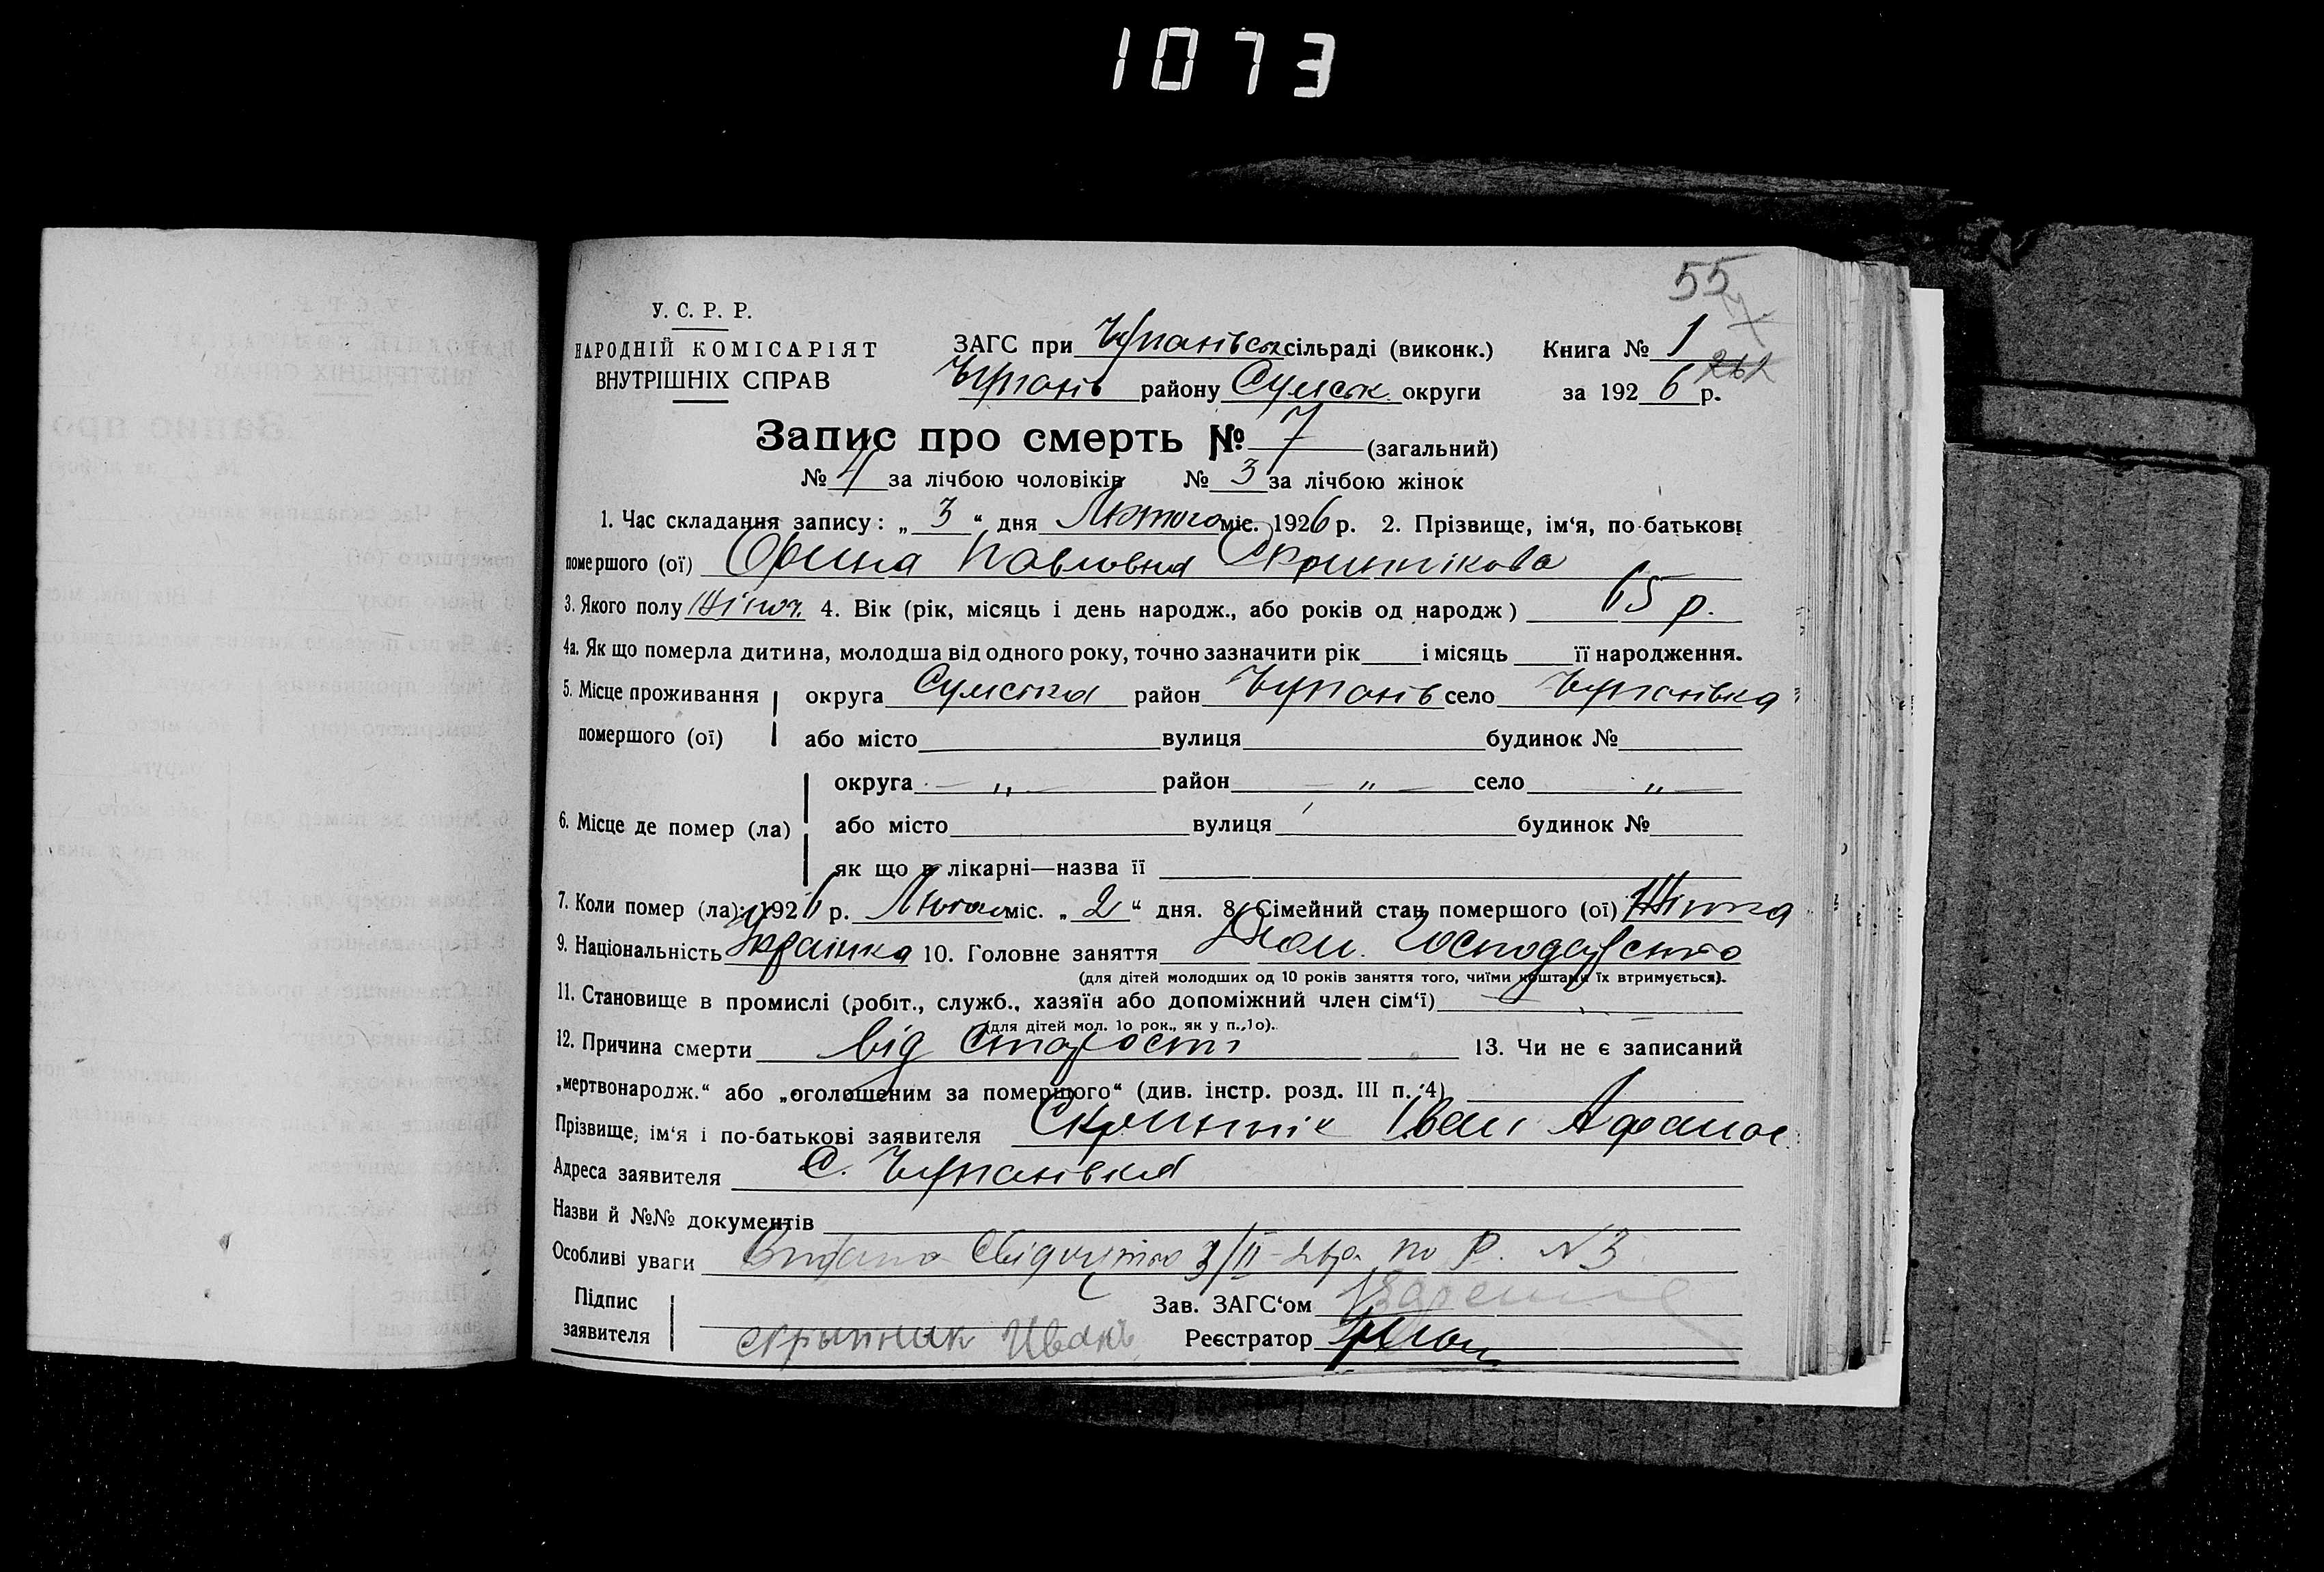 1073
55
У. С. Р. Р.
НАРОДНІЙ КОМІСАРІЯТ
ВНУТРІШНІХ СПРАВ
ЗАГС при Чупахівськ сільраді (виконк.) Книга № 1
Чупахів району Сумськ. округи за 1926 р.
Запис про смерть № 7 (загальний)
№ 4 за лічбою чоловіків № 3 за лічбою жінок
1. Час складання запису: „ 3 “ дня Лютого міс. 1926 р. 2. Прізвище, ім‘я, по-батькові
помершого (ої) Орина Павловна Скрипнікова
3. Якого полу Жіноч. 4. Вік (рік, місяць і день народж., або років од народж) 65 р.
4а. Як що померла дитина, молодша від одного року, точно зазначити рік і місяць її народження.
5. Місце проживання округа Сумська район Чупахів село Чупахівка
помершого (ої) або місто вулиця будинок №
округа — „ — район — „ — село — „ —
6. Місце де помер (ла) або місто вулиця будинок №
як що в лікарні—назва її
7. Коли помер (ла): 1926 р. Лютого міс. „ 2 “ дня. 8. Сімейний стан помершого (ої) Жінка
9. Національність Українка 10. Головне заняття Дом. Господарство
(для дітей молодших од 10 років заняття того, чиїми коштами їх втримується).
11. Становище в промислі (робіт., служб., хазяїн або допоміжний член сім‘ї) —
(для дітей мол. 1о рок., як у п. 1о).
12. Причина смерти від старости 13. Чи не є записаний
„мертвонародж.“ або „оголошеним за помершого“ (див. інстр. розд. III п. 4)
Прізвище, ім‘я і по-батькові заявителя Скрипнік Іван Афанас.
Адреса заявителя С. Чупахівка
Назви й №№ документів
Особливі уваги Видано Свідоцтво 3/II-26р. по Р. N 3
Підпис Зав. ЗАГС‘ом
заявителя скрыпник Иванъ Реєстратор